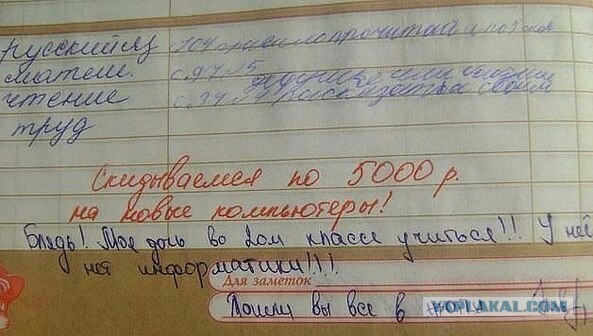 русский яз 104 правило прочитать
матем. с.97
чтение с.34 рассказать о своём
труд
Скидываемся по 5000 р.
на новые компьютеры!
Блядь! Моя дочь во 2ом классе учиться!!! У неё
нет информатики!!!!
Для заметок
Пошли вы все в
YOPLAKAL.COM